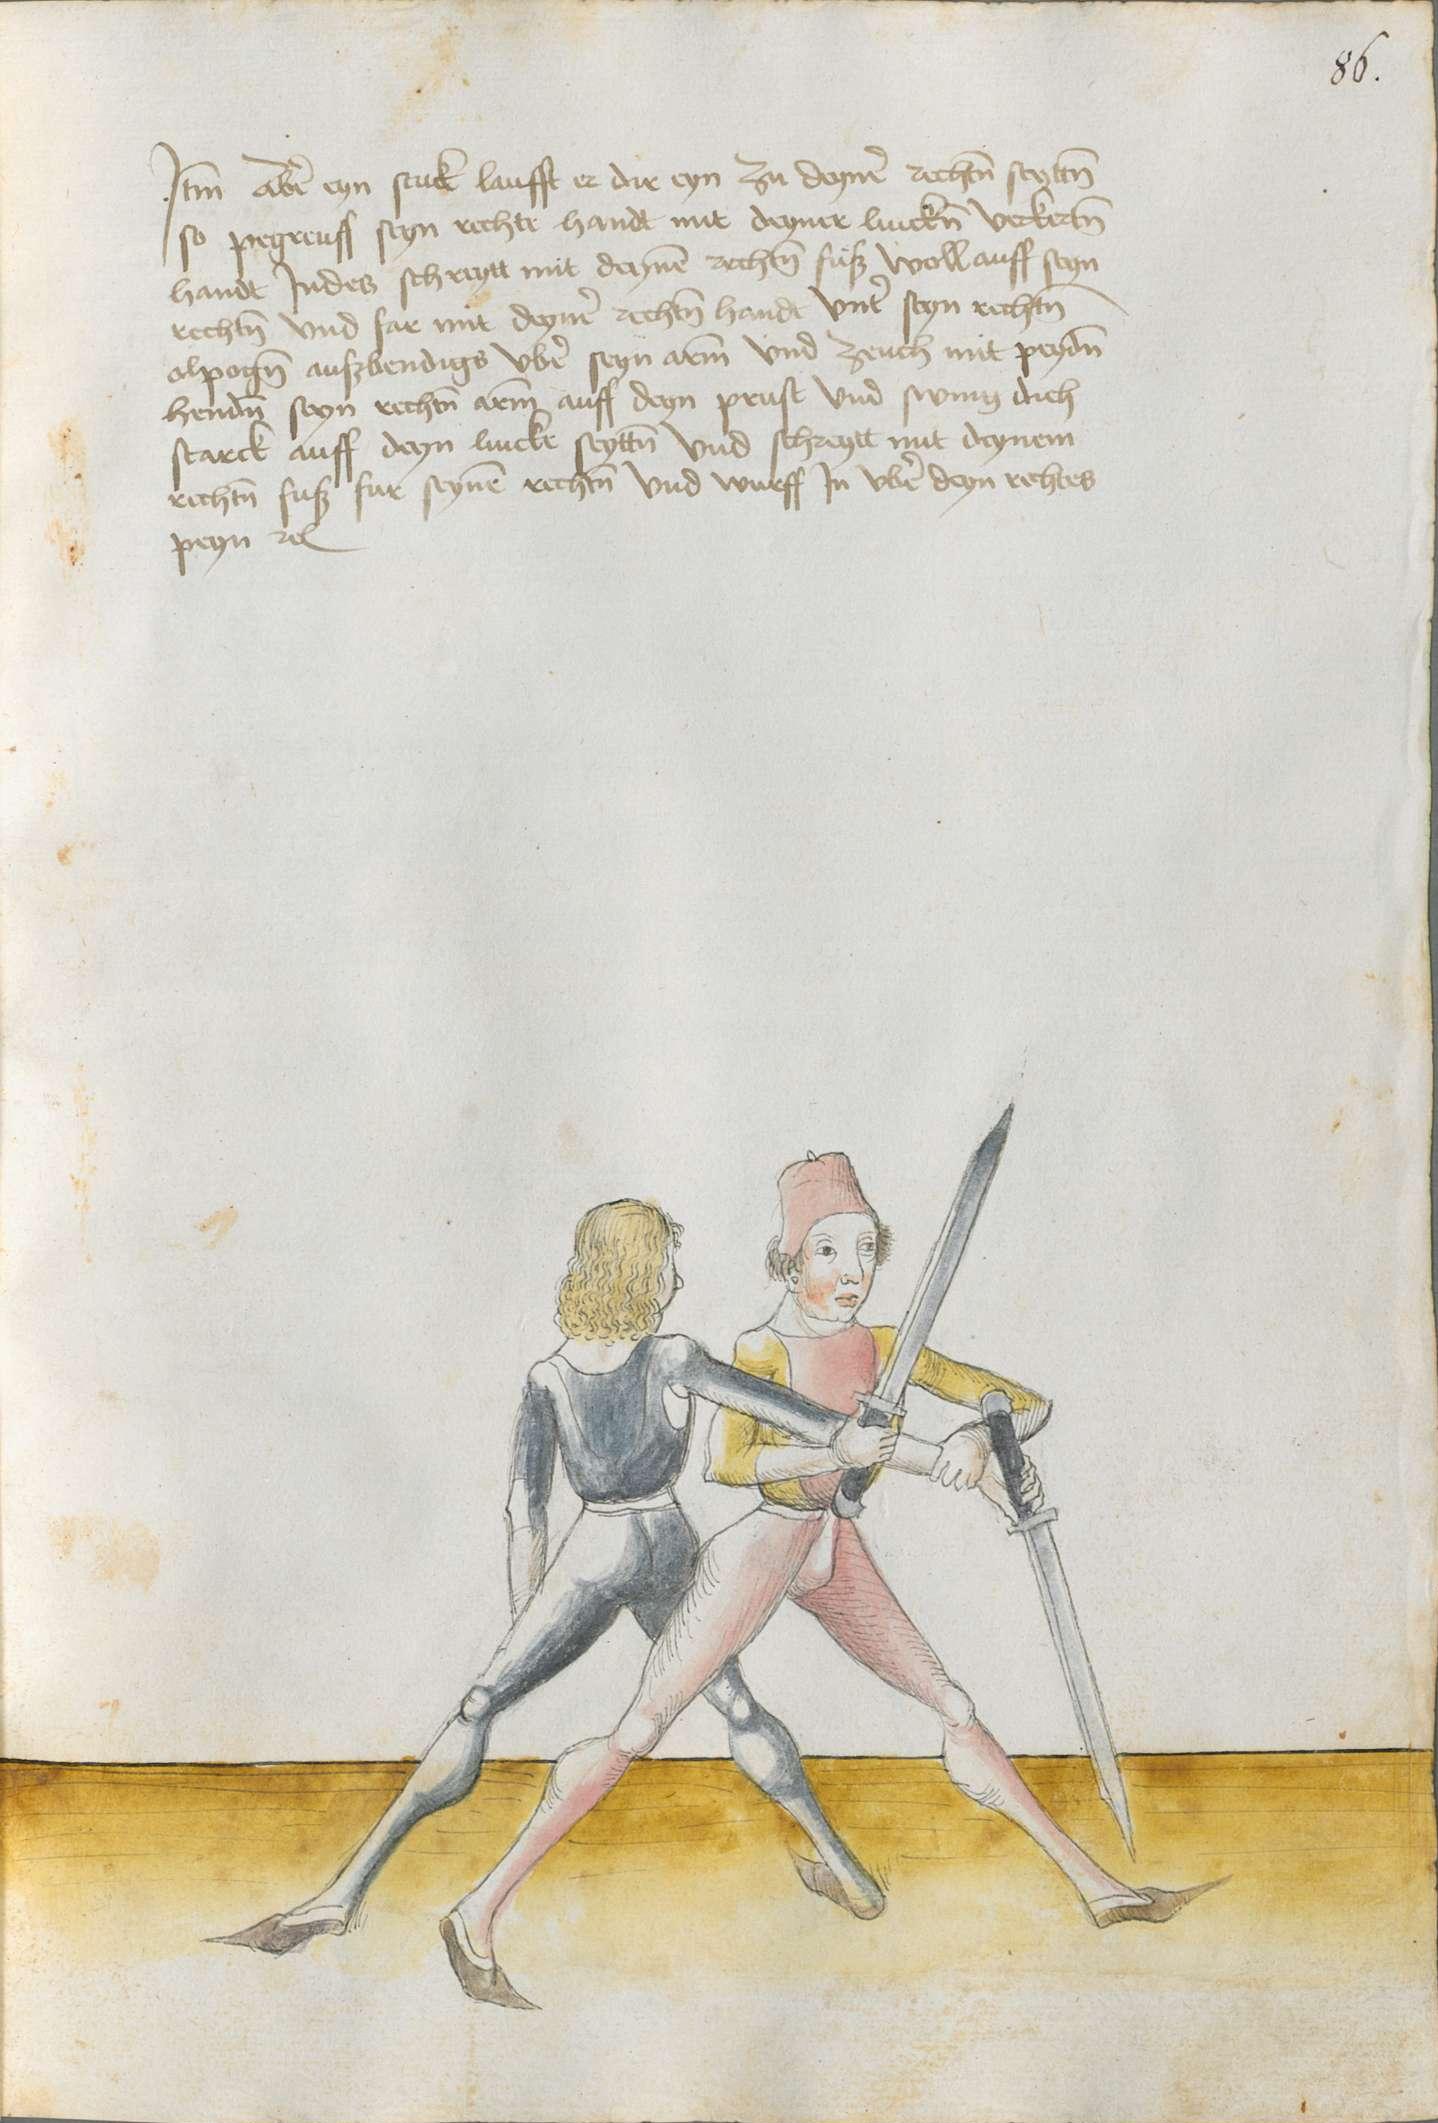 86.
Itm̄ aber̄ eyn stuck laufft er dir eyn zu deyner̄ rechtn̄ seyttn̄
so pegreuff seyn rechte handt mit deyner linckn̄ verkertn̄
handt Indes schreytt mit deynē rechtn̄ fuß woll auff seyn
rechtn̄ vnd far mit deyner̄ rechtn̄ handt vnter̄ seyn rechtn̄
elpogn̄ außbendigs vber̄ seyn arm̄ vnd zeuch mit peydn̄
hendn̄ seyn rechtn̄ arm̄ auff deyn prust vnd swing dich
starck auff deyn lincke seyttn̄ vnd schreytt mit deynem
rechtn̄ fuß fur seynē rechtn̄ vnd wurff In vber̄ deyn rechtes
peyn